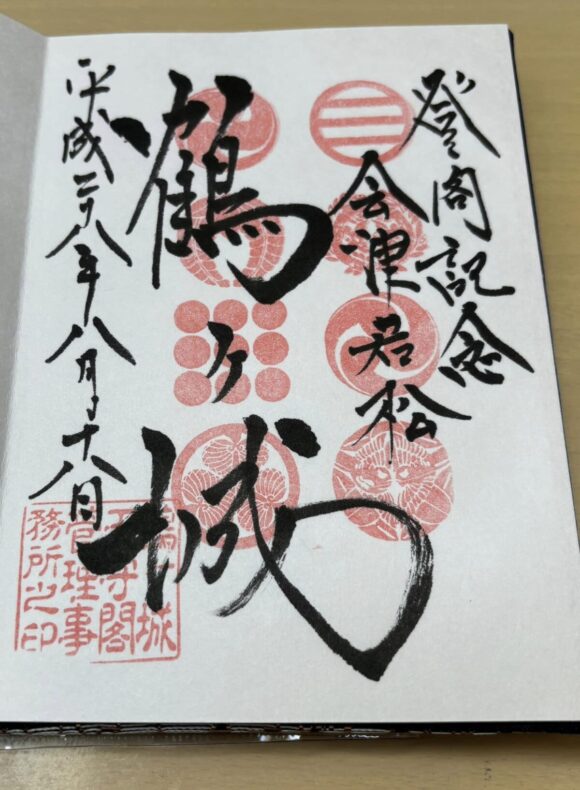 登閣記念
会津若松
鶴ヶ城
平成二十八年八月十八日
鶴ヶ城
天守閣
管理事
務所之印